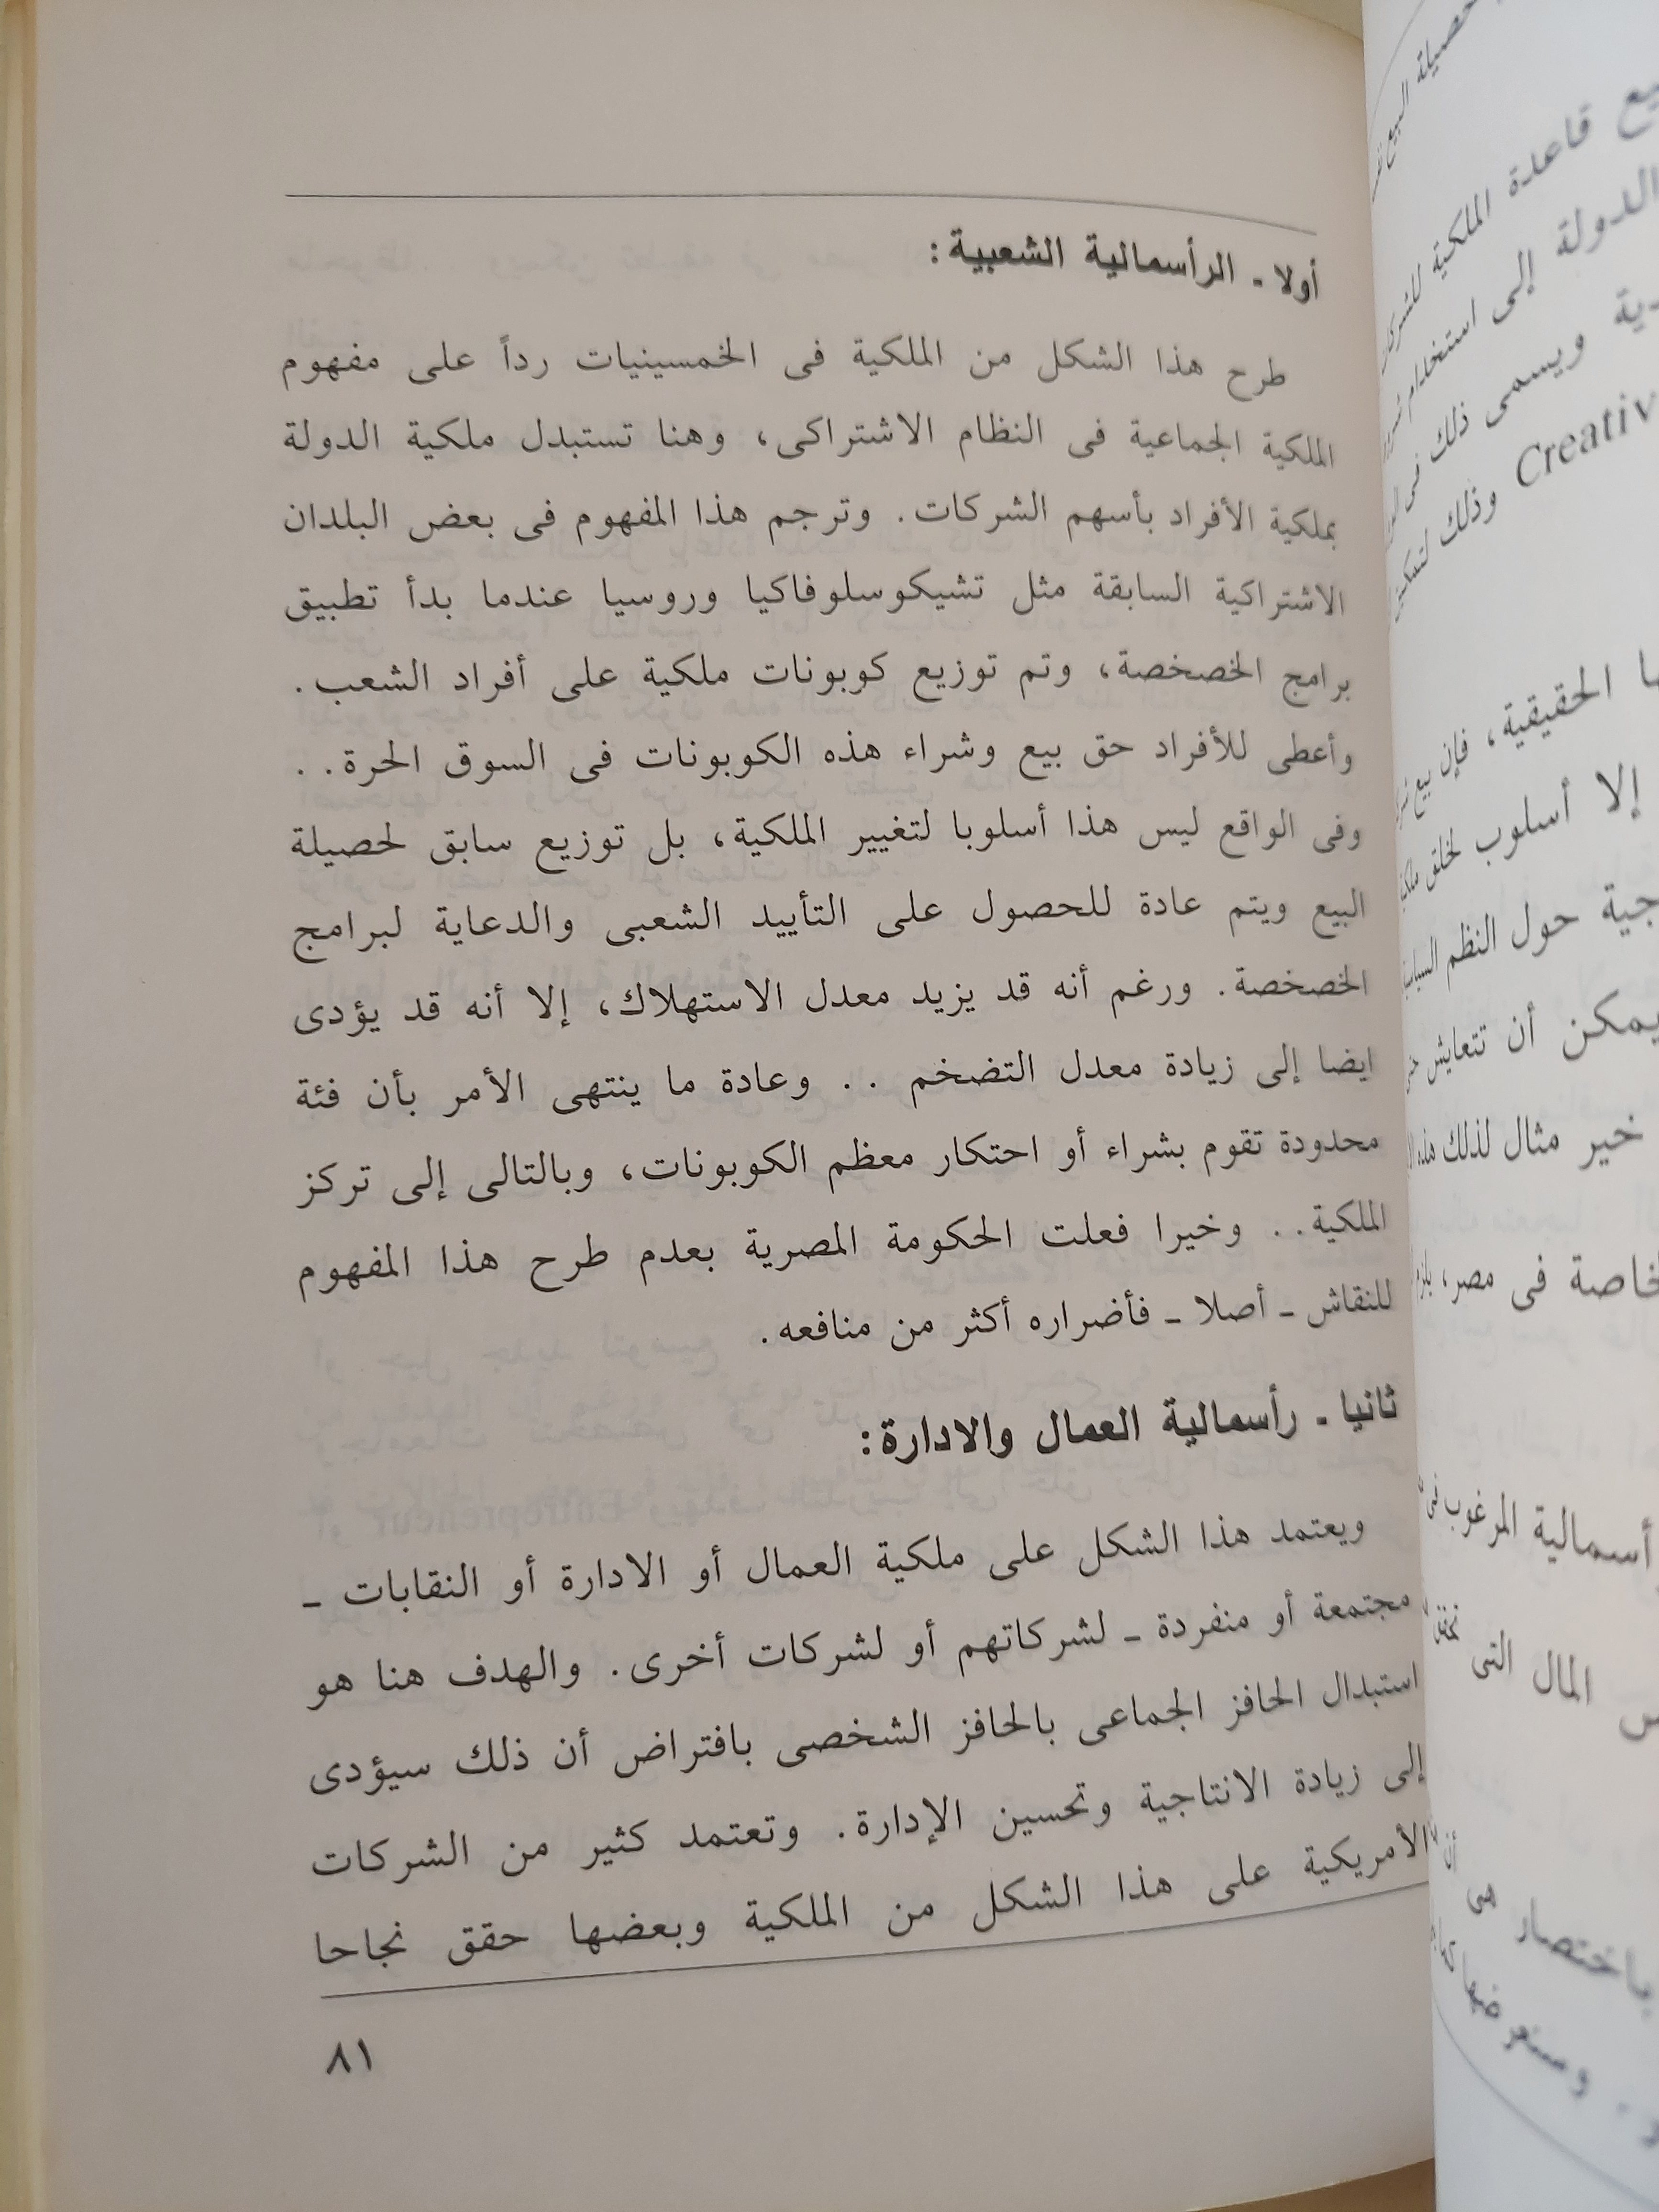 أولا ـ الرأسمالية الشعبية :
طرح هذا الشكل من الملكية فى الخمسينيات رداً على مفهوم
الملكية الجماعية فى النظام الاشتراكى، وهنا تستبدل ملكية الدولة
بملكية الأفراد بأسهم الشركات. وترجم هذا المفهوم فى بعض البلدان
الاشتراكية السابقة مثل تشيكوسلوفاكيا وروسيا عندما بدأ تطبيق
برامج الخصخصة، وتم توزيع كوبونات ملكية على أفراد الشعب.
وأعطى للأفراد حق بيع وشراء هذه الكوبونات فى السوق الحرة..
وفى الواقع ليس هذا أسلوبا لتغيير الملكية، بل توزيع سابق لحصيلة
البيع ويتم عادة للحصول على التأييد الشعبى والدعاية لبرامج
الخصخصة. ورغم أنه قد يزيد معدل الاستهلاك، إلا أنه قد يؤدى
ايضا إلى زيادة معدل التضخم .. وعادة ما ينتهى الأمر بأن فئة
محدودة تقوم بشراء أو احتكار معظم الكوبونات، وبالتالى إلى تركز
الملكية.. وخيرا فعلت الحكومة المصرية بعدم طرح هذا المفهوم
للنقاش ـ أصلا ـ فأضراره أكثر من منافعه.
ثانيا ـ رأسمالية العمال والادارة :
ويعتمد هذا الشكل على ملكية العمال أو الادارة أو النقابات ـ
مجتمعة أو منفردة ـ لشركاتهم أو لشركات أخرى. والهدف هنا هو
استبدال الحافز الجماعى بالحافز الشخصى بافتراض أن ذلك سيؤدى
إلى زيادة الانتاجية وتحسين الإدارة. وتعتمد كثير من الشركات
الأمريكية على هذا الشكل من الملكية وبعضها حقق نجاحا
٨١
قاعدة الملكية
الدولة إلى استخدام
ويسمى ذلك
وذلك
الحقيقية، فإن بيع
إلا أسلوب لخلق
حول النظم
يمكن أن تتعايش
خير مثال لذلك
فى مصر،
المرغوب
المال التى
باختصار هى